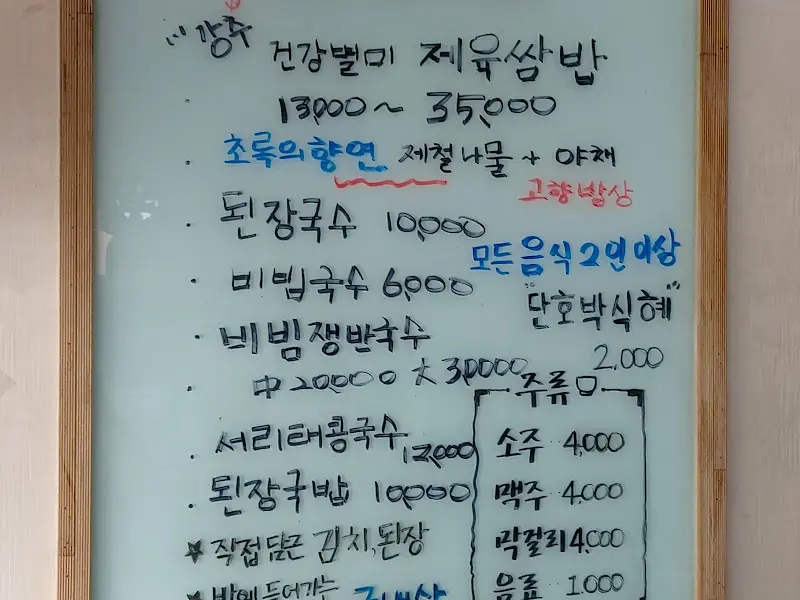 "강주
건강별미 제육쌈밥
13,000~ 35,000
초록의향연 제철나물 + 야채
고향밥상
된장국수 10,000
모든음식2인이상
비빔국수 6,000
"단호박식혜"
2.000
비빔쟁반국수
中 20,000 大 30,000
서리태콩국수 12,000
된장국밥 10,000
★ 직접담근 김치, 된장
★ 밥에 들어가는
주류
소주 4,000
맥주 4,000
막걸리 4,000
음료 1.000